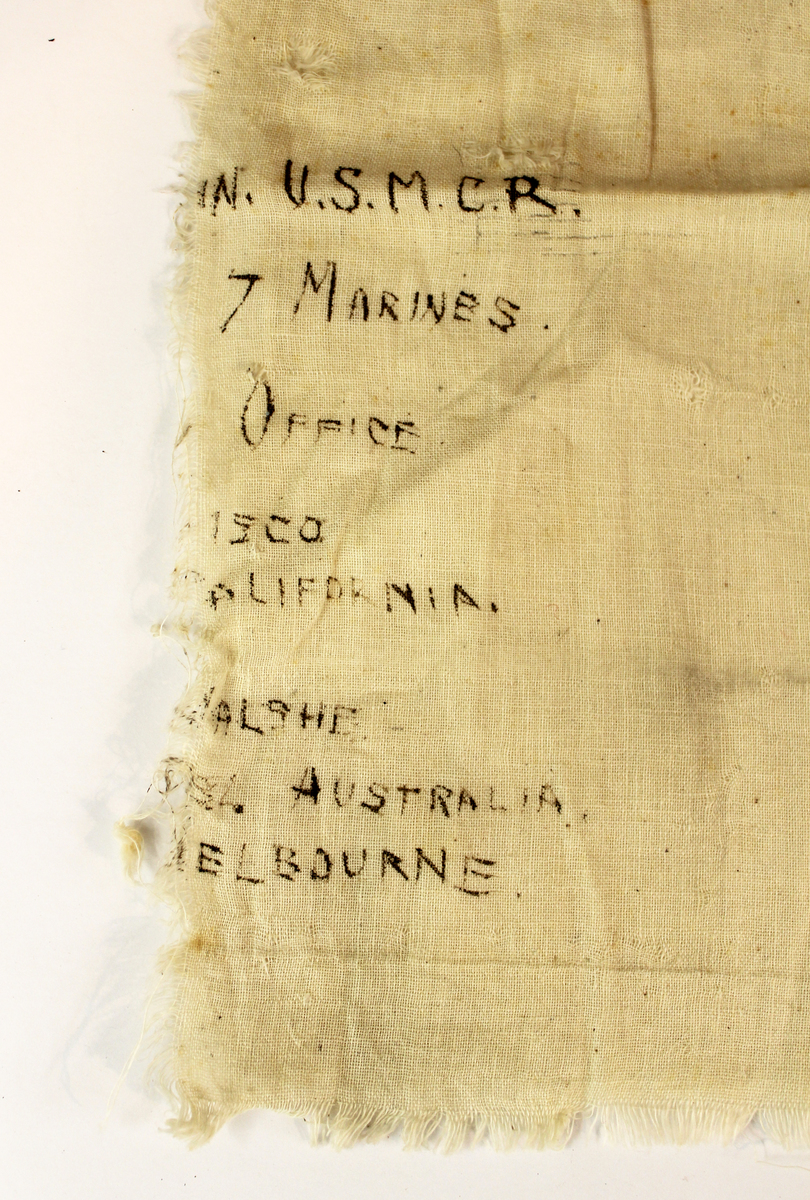 IN. U.S.M.C.R.
7 MARINES.
OFFICE
ISCO
CALIFORNIA.
WALSHE
AUSTRALIA.
MELBOURNE.